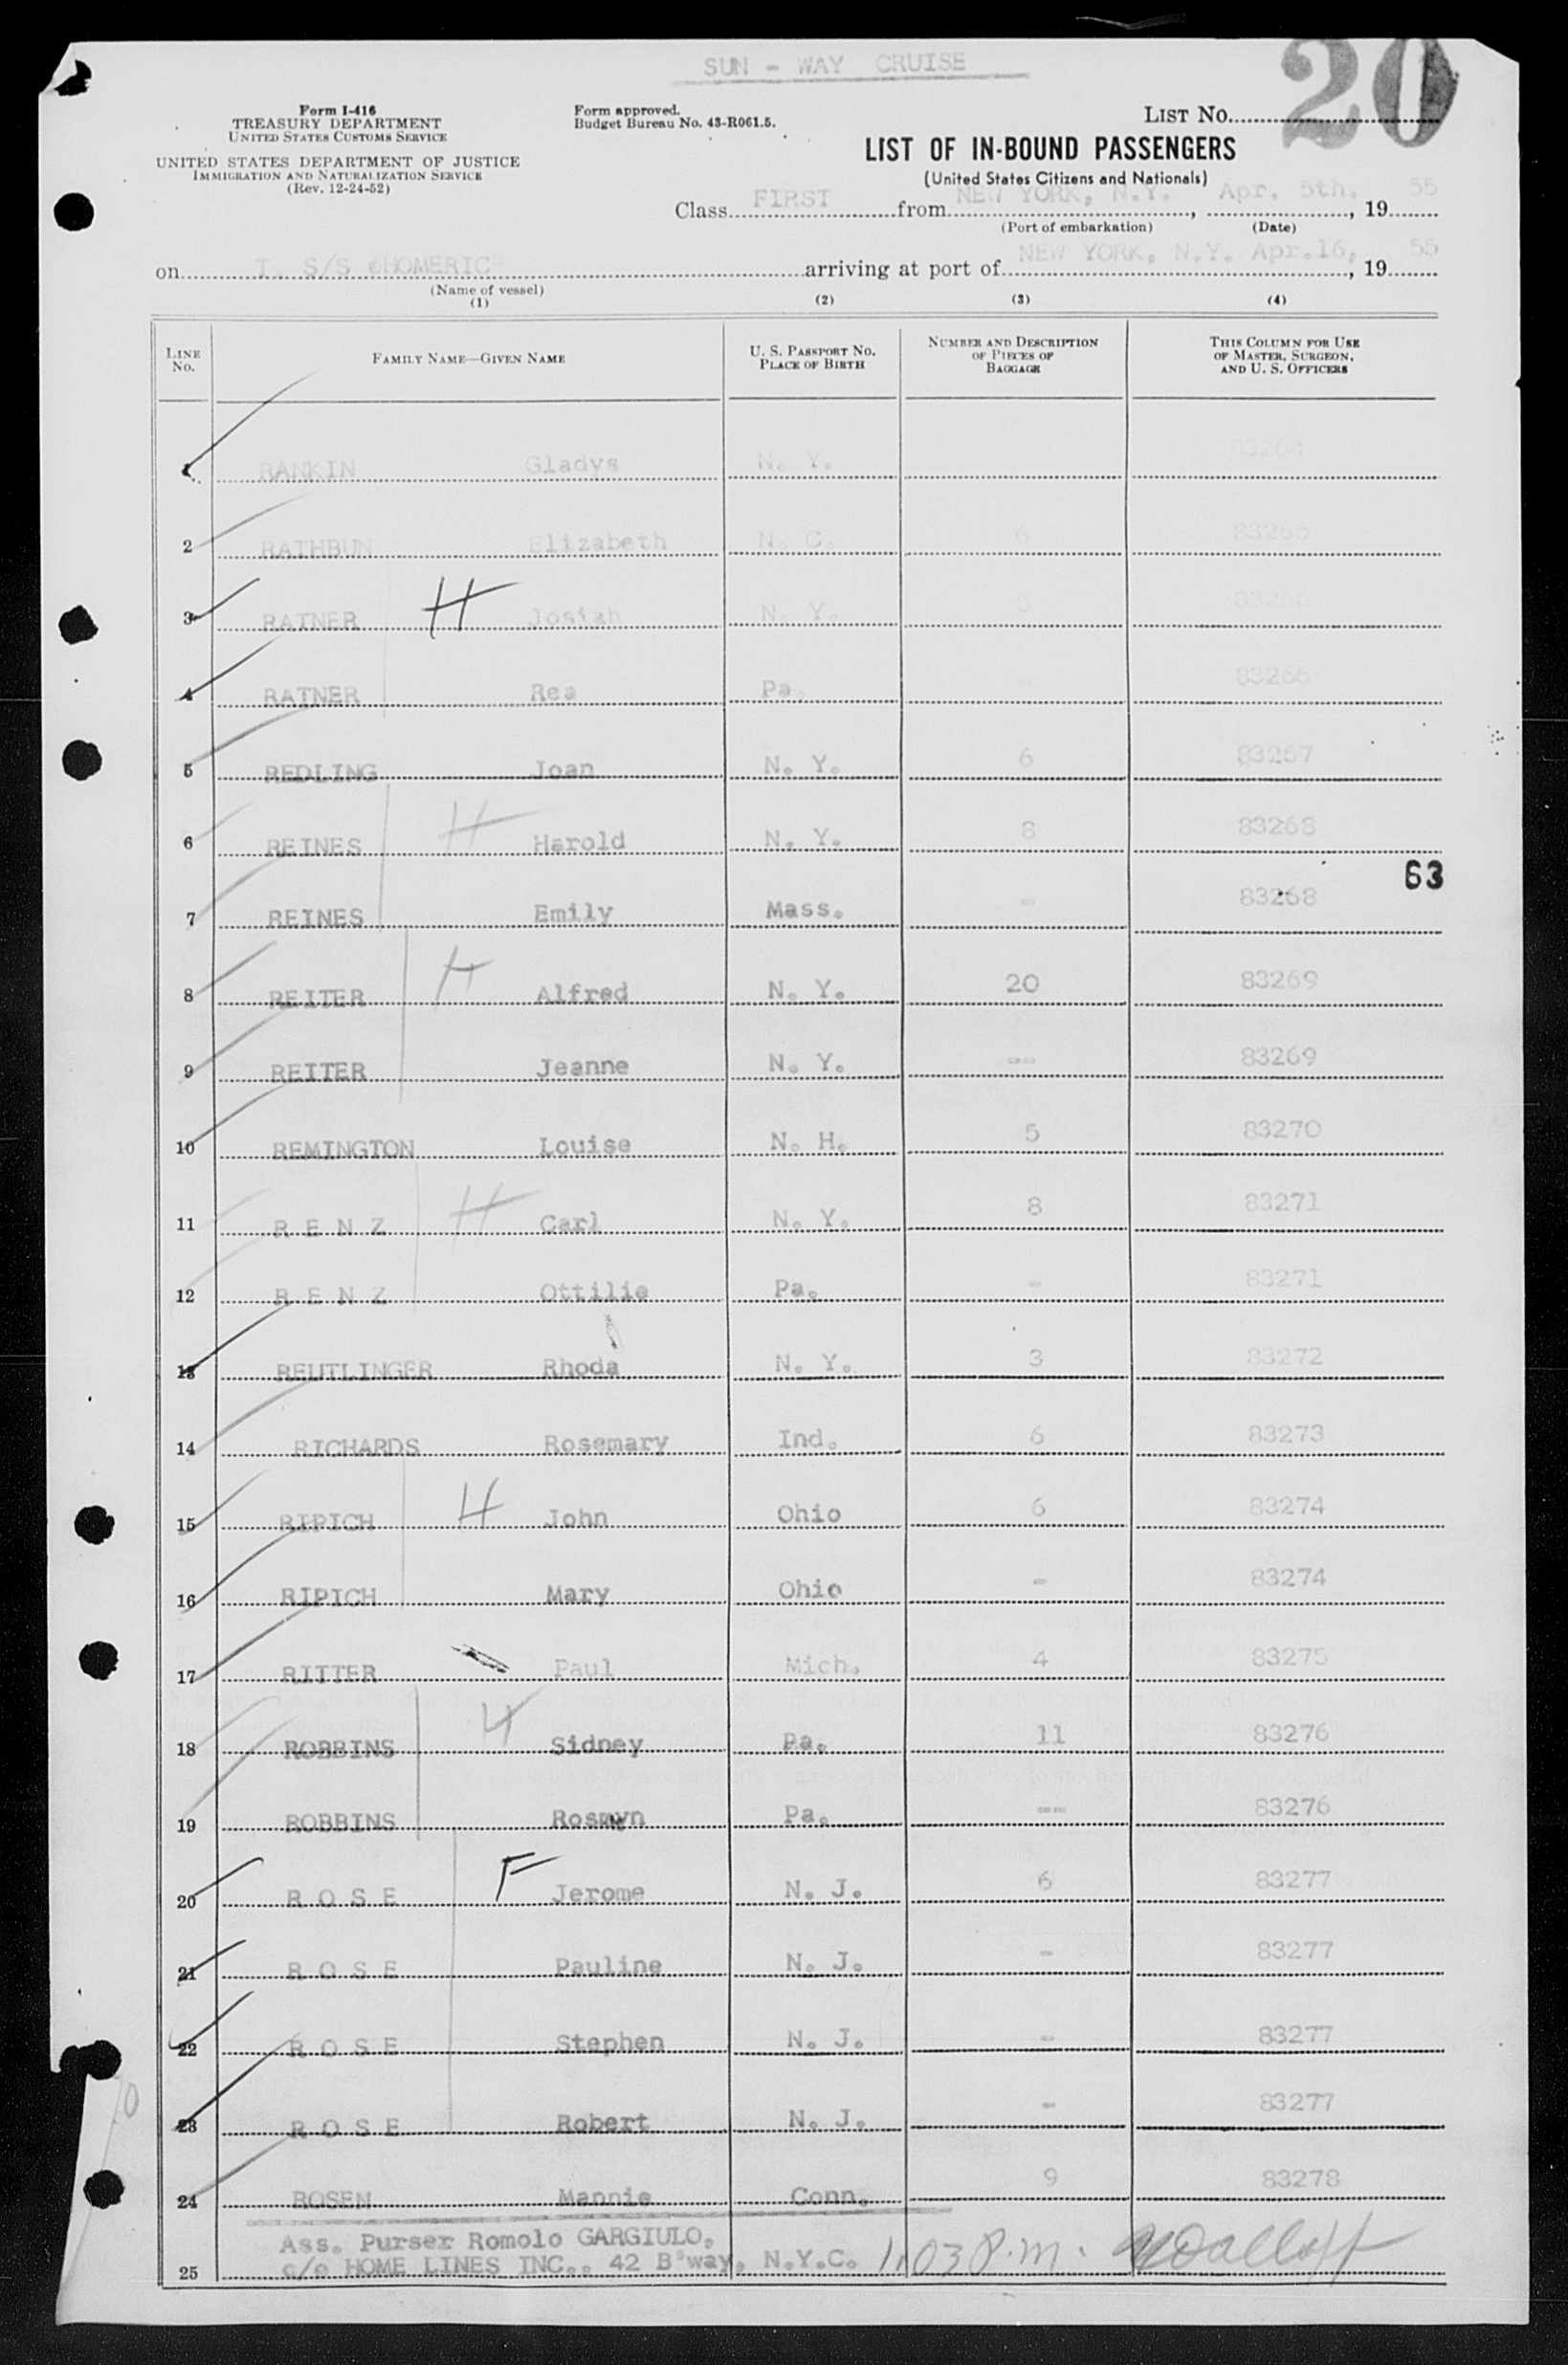 SUN - WAY CRUISE
20
Form I-416
TREASURY DEPARTMENT
UNITED STATES CUSTOMS SERVICE
UNITED STATES DEPARTMENT OF JUSTICE
IMMIGRATION AND NATURALIZATION SERVICE
(Rev. 12-24-52)
Form approved.
Budget Bureau No. 43-R061.5.
LIST NO.
LIST OF IN-BOUND PASSENGERS
(United States Citizens and Nationals)
Class FIRST from NEW YORK, N.Y., Apr. 5th, 1955
(Port of embarkation) (Date)
on T. S/S "HOMERIC" arriving at port of NEW YORK, N.Y. Apr.16, 1955
(Name of vessel)
(1) (2) (3) (4)
LINE NO. FAMILY NAME—GIVEN NAME U. S. PASSPORT NO. PLACE OF BIRTH NUMBER AND DESCRIPTION OF PIECES OF BAGGAGE THIS COLUMN FOR USE OF MASTER, SURGEON, AND U. S. OFFICERS
1 RANKIN Gladys N. Y. 83264
2 RATHBUN Elizabeth N. C. 6 83265
3 RATNER H Josiah N. Y. 83266
4 RATNER Rea Pa. 83266
5 REDLING Joan N. Y. 6 83267
6 REINES H Harold N. Y. 8 83268
63
7 REINES Emily Mass. - 83268
8 REITER H Alfred N. Y. 20 83269
9 REITER Jeanne N. Y. -- 83269
10 REMINGTON Louise N. H. 5 83270
11 R E N Z H Carl N. Y. 8 83271
12 R E N Z Ottilie Pa. - 83271
13 REUTLINGER Rhoda N. Y. 3 83272
14 RICHARDS Rosemary Ind. 6 83273
15 RIPICH H John Ohio 6 83274
16 RIPICH Mary Ohio - 83274
17 RITTER Paul Mich. 4 83275
18 ROBBINS H Sidney Pa. 11 83276
19 ROBBINS Pa. -- 83276
20 R O S E F Jerome N. J. 6 83277
21 R O S E Pauline N. J. - 83277
22 R O S E Stephen N. J. - 83277
23 R O S E Robert N. J. - 83277
24 ROSEN Mannie Conn. 9 83278
Ass. Purser Romolo GARGIULO,
25 c/o HOME LINES INC., 42 B'way, N.Y.C. 1:03 P.m.